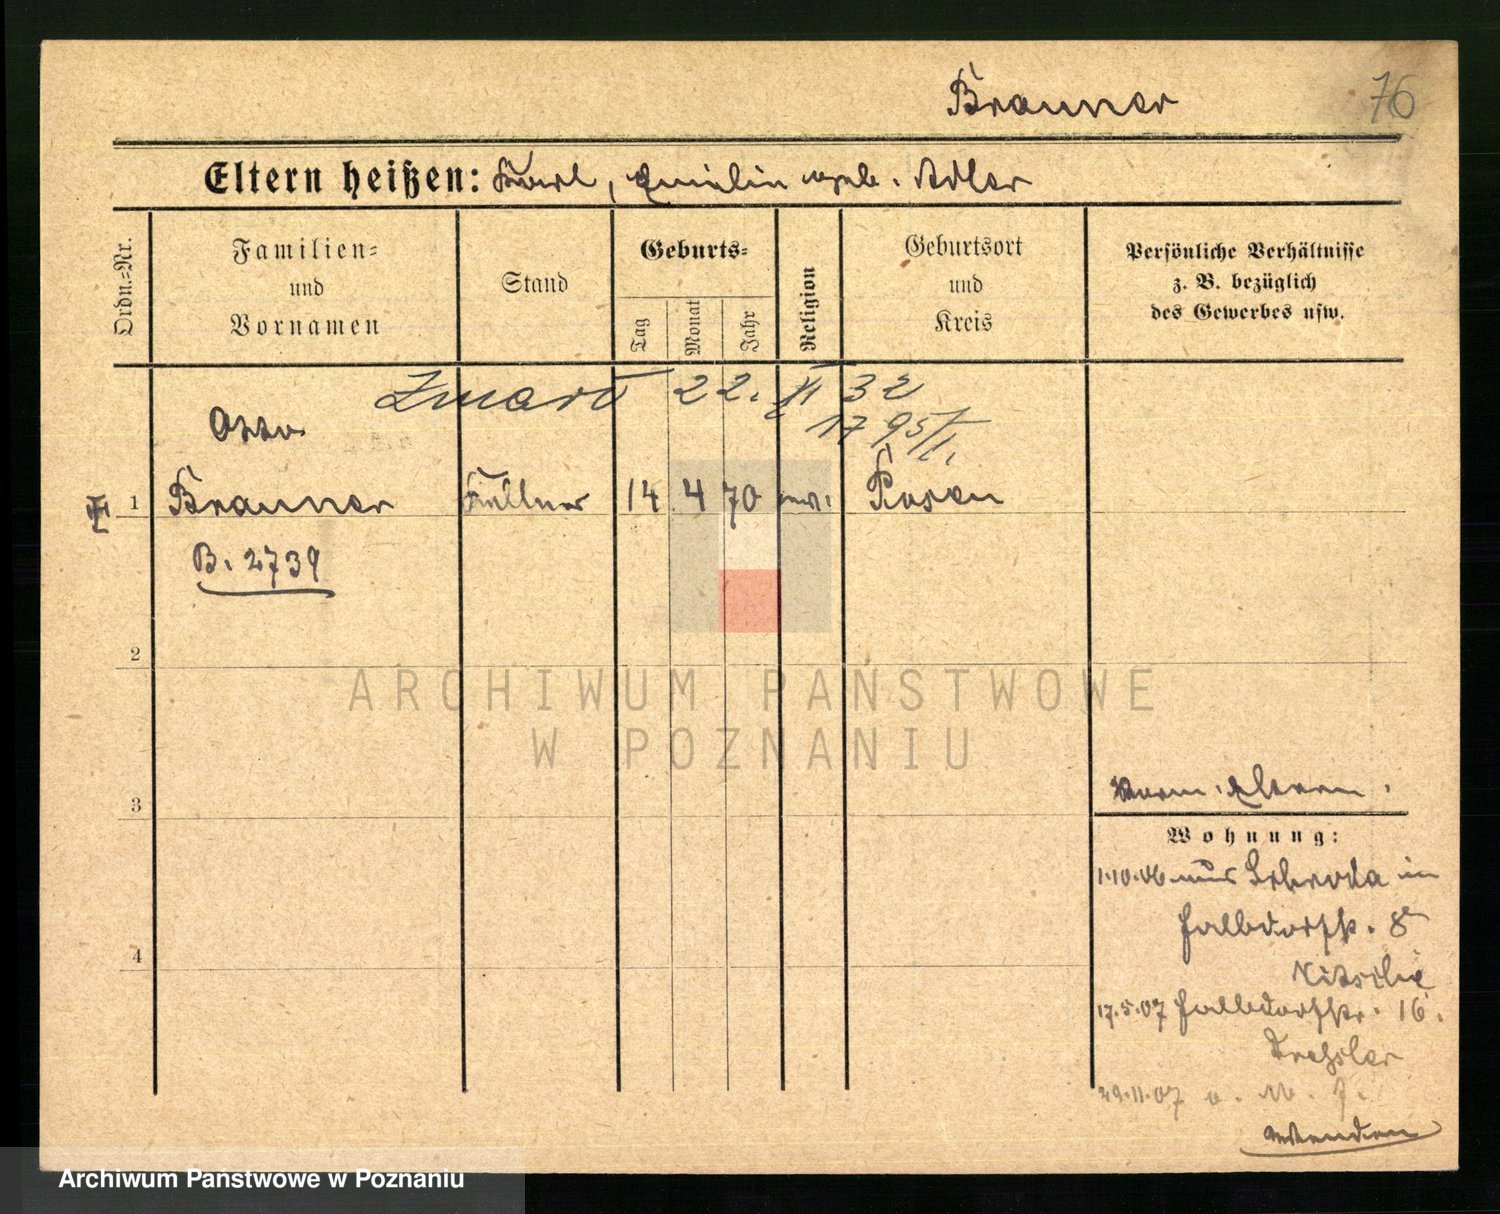 Brauner 76
Eltern heißen: Karl, Emilie geb. Adler
Ordn.=Nr.
Familien=
und
Vornamen
Stand
Geburts=
Tag
Monat
Jahr
Religion
Geburtsort
und
Kreis
Persönliche Verhältnisse
z. B. bezüglich
des Gewerbes usw.
Zmarł 22. XI 32
1795/I.
Otto
1 Brauner Kellner 14 4 70 ev. Posen
B. 2739
2
ARCHIWUM PAŃSTWOWE
W POZNANIU
3
Eltern.
Wohnung:
1.10.06 aus Schroda in
Halbdorfstr. 8
4
17.5.07 Halbdorfstr. 16.
Drexler
29.11.07
wenden
Archiwum Państwowe w Poznaniu